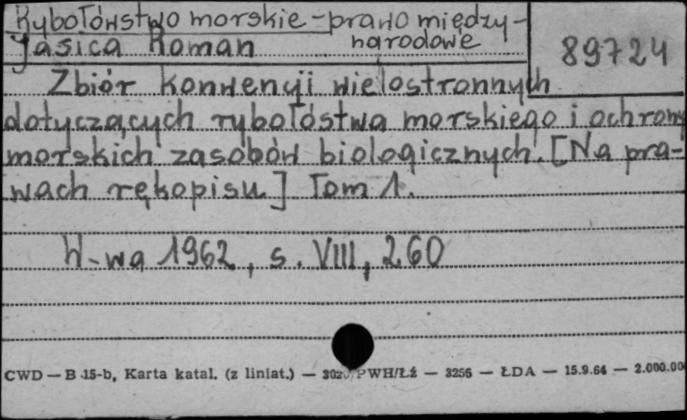 Rybołówstwo morskie - prawo między-
narodowe
Jasica Roman
89724
Zbiór konwencji wielostronnych
dotyczących rybołóstwa morskiego i ochrony
morskich zasobów biologicznych. [Na pra-
wach rękopisu] Tom 1.
W-wa 1962, s. VIII, 260
CWD — B 15-b, Karta katal. (z liniat.) — PWH/Łź — 3256 — ŁDA — 15.9.64 — 2.000.00